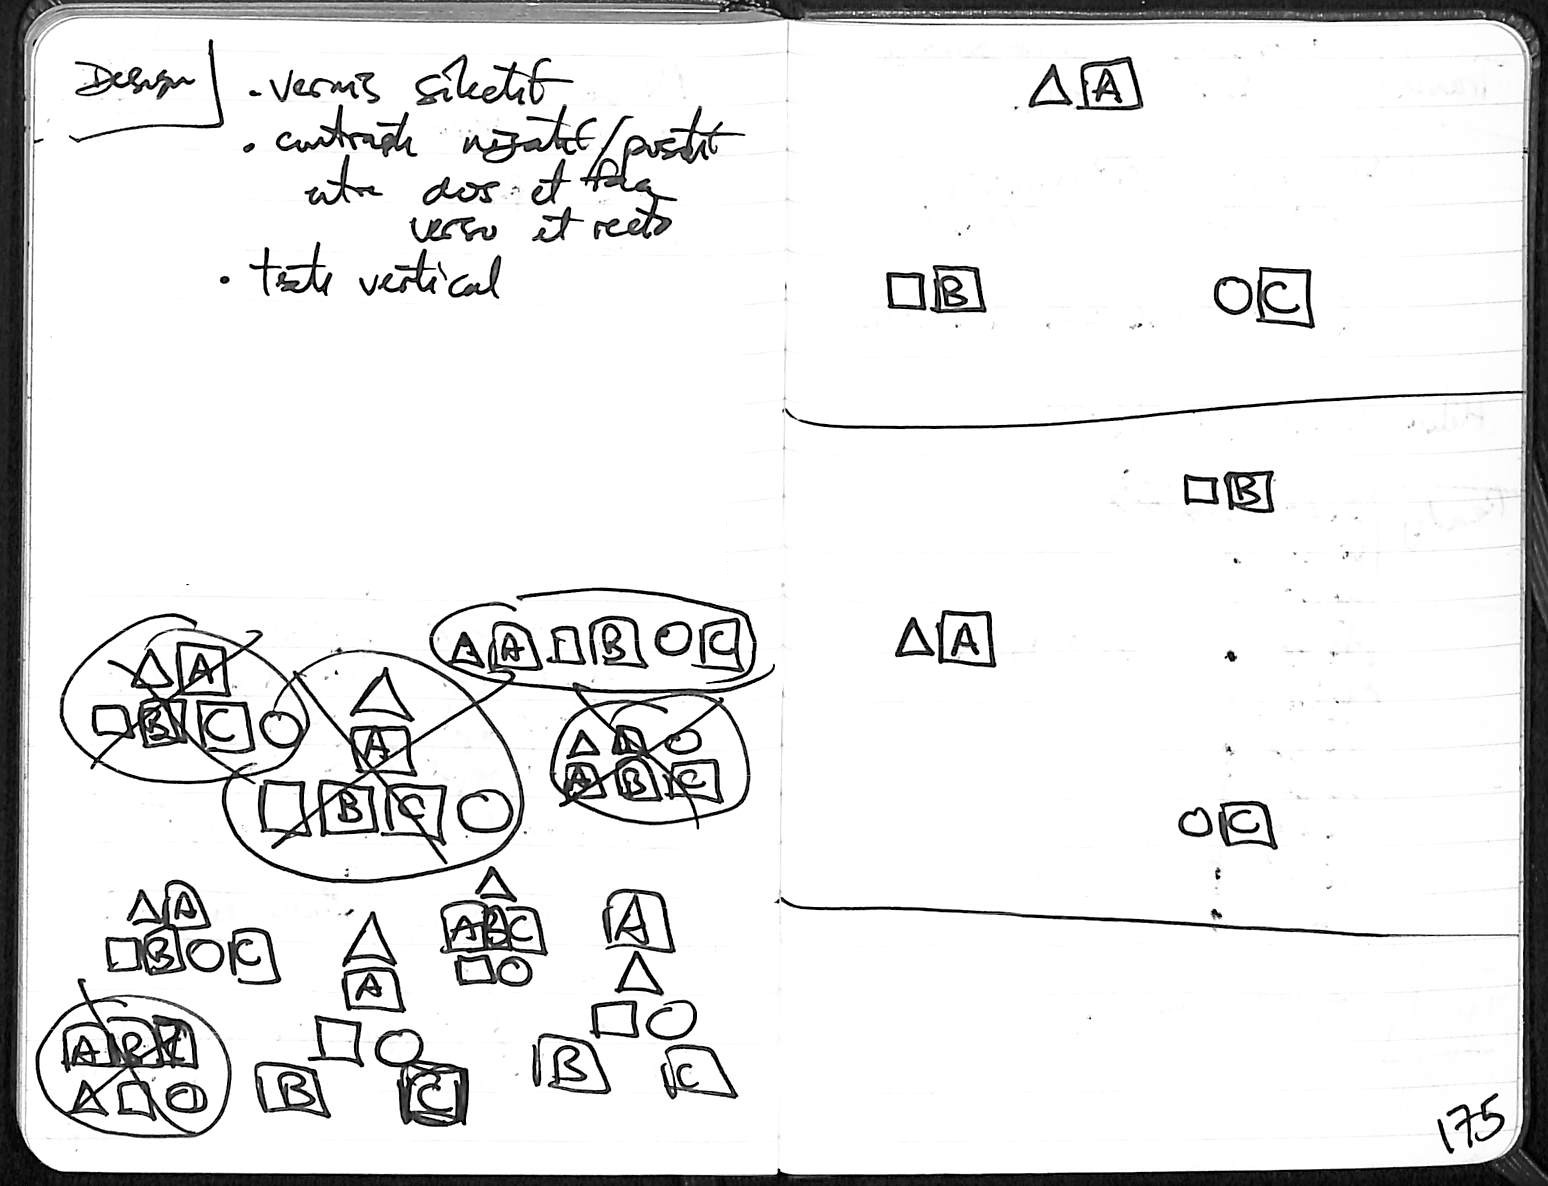 Design
. vernis sélectif
. contraste négatif/positif
entre dos et
verso et recto
. texte vertical
A
B C
A
B C
A B C
A B C
A
B C
A
B C
A B C
A
B C
A B C
A
B C
B
A
C
175